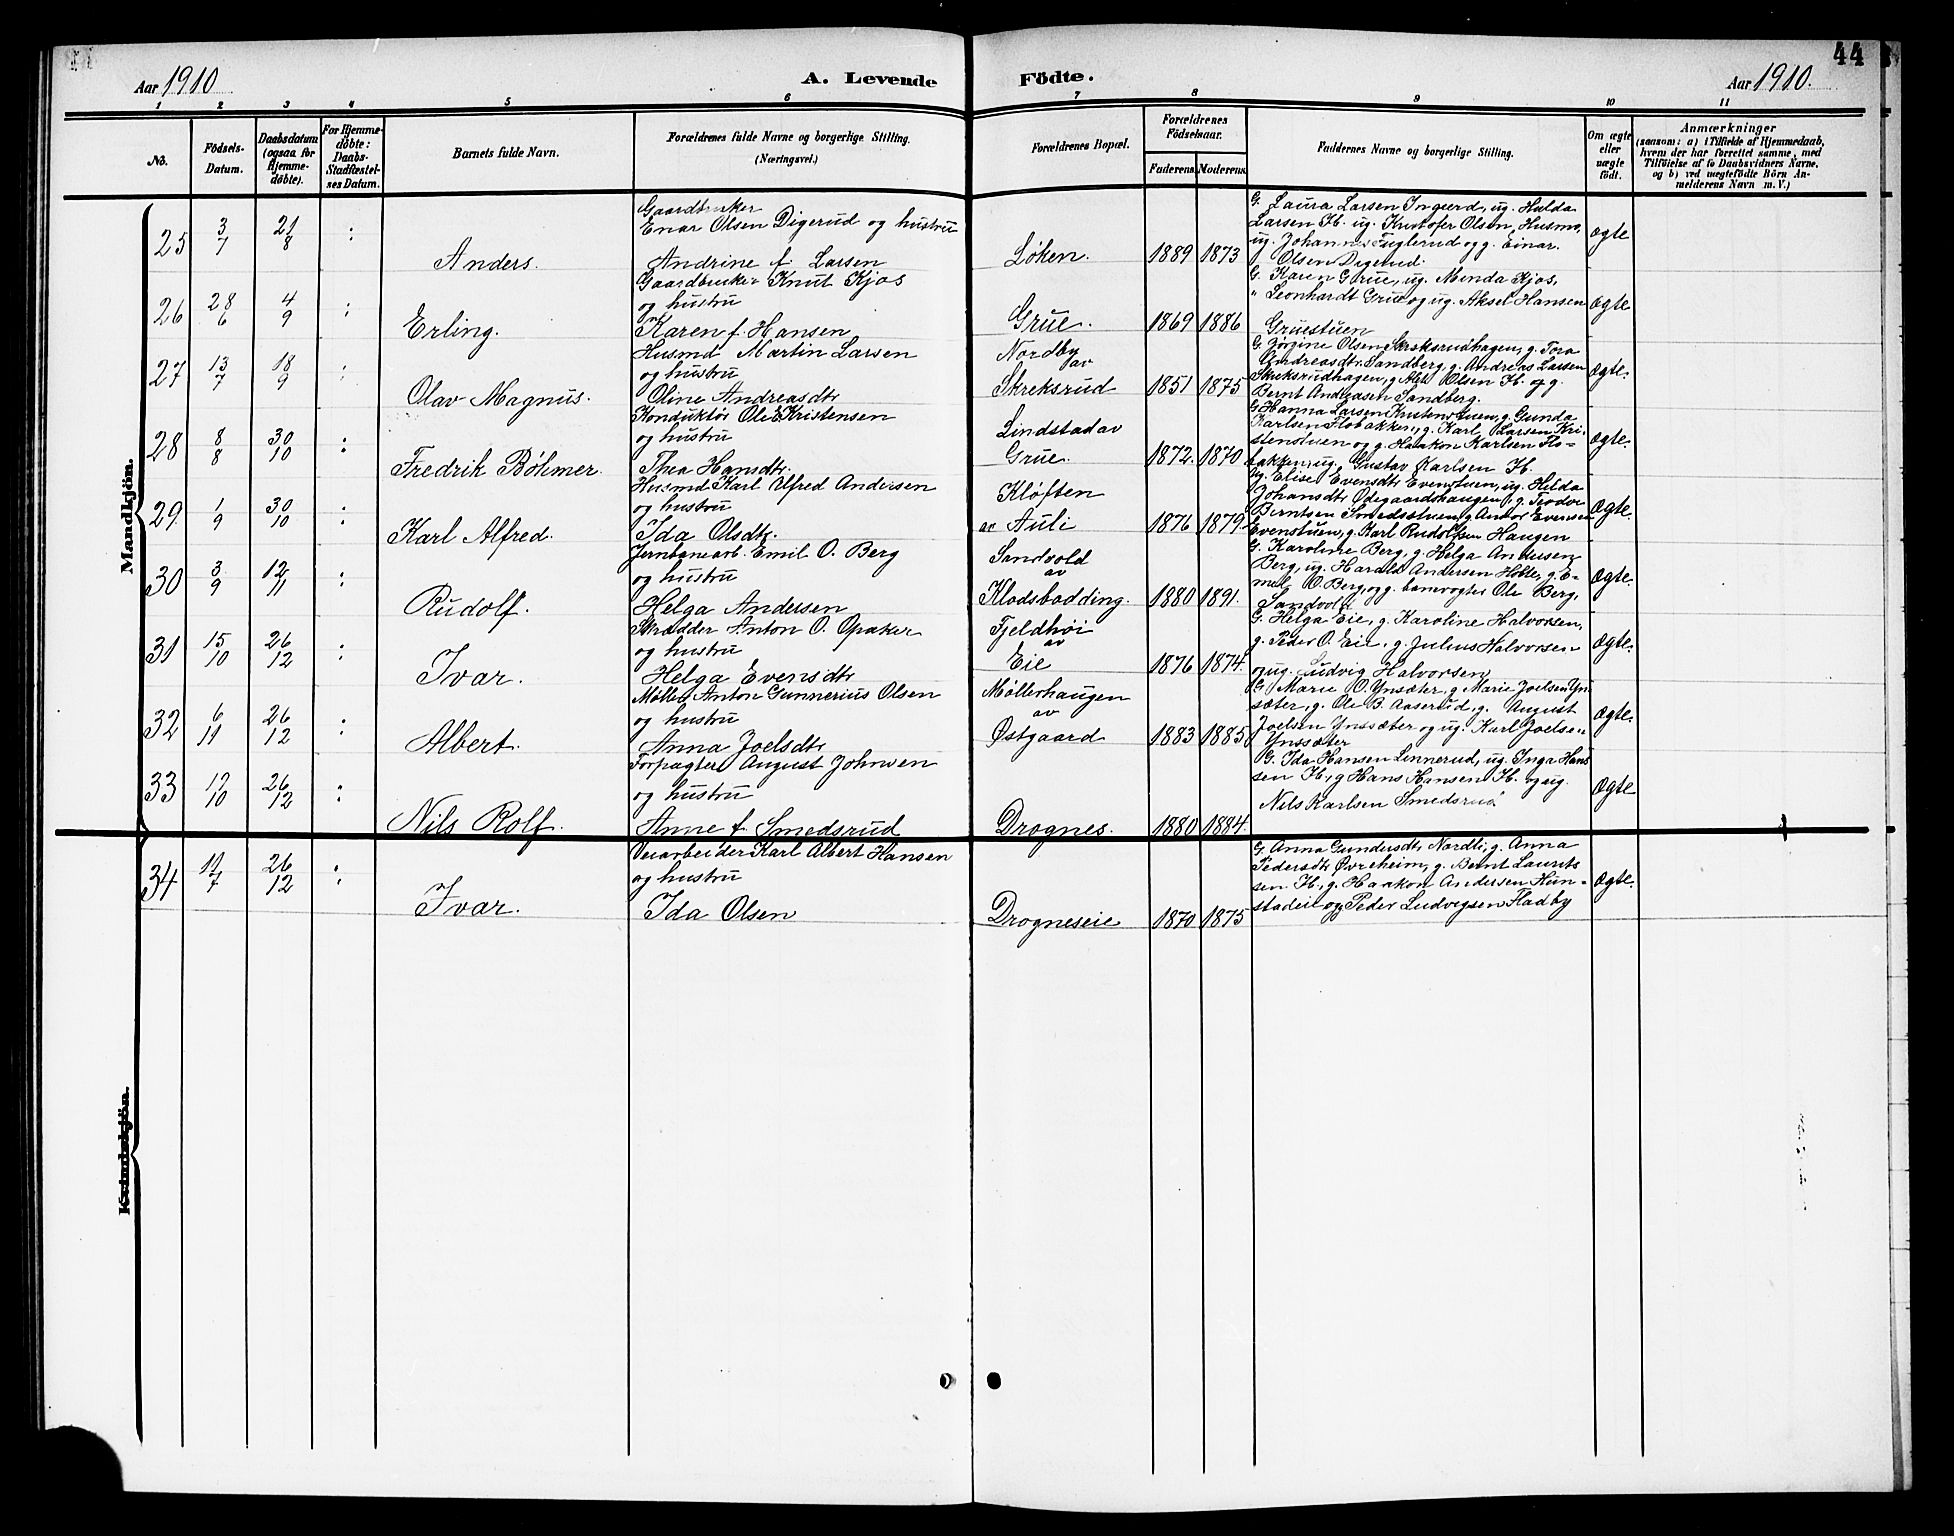 44
Aar 1910
A. Levende Födte.
Aar 1910.
1 2 3 4 5 6 7 8 9 10 11
No.
Födsels-
Datum.
Daabsdatum
(ogsaa for
Hjemme-
døbte).
For Hjemme-
døbte:
Daabs-
Stadfæstel-
ses Datum.
Barnets fulde Navn.
Forældrenes fulde Navne og borgerlige Stilling.
(Næringsvei.)
Forældrenes Bopæl.
Forældrenes
Födselsaar.
Faderens. Moderens.
Faddernes Navne og borgerlige Stilling.
Om ægte
eller
uægte
født.
Anmærkninger
(saasom: a) i Tilfælde af Hjemmedaab,
hvem der har forrettet samme, med
Tilföielse af to Daabsvidners Navne,
og b) ved uægtefödte Börn An-
melderens Navn m. V.)
Mandkjön.
25 3/7 21/8 :
Anders.
Gaardbruker
Enar Olsen Digerud og hustru
Andrine f. Larsen
Løken. 1889 1873
G. Laura Larsen Ingerd, ug. Hulda
Larsen Ib. ug. Kristofer Olsen, Husmo,
ug. Johannes Fuglerud og g. Einar
Olsen Digerud.
Ægte
26 28/6 4/9 :
Erling.
Gaardbruker Knut Kjos
og hustru
Karen f. Hansen
Grue. 1869 1886
G. Karen Grue, ug. Menda Kjos,
" Leonhardt Grue og ug. Aksel Hansen
Gruestuen
Ægte
27 13/7 18/9 :
Olav Magnus.
Husmd Martin Larsen
og hustru
Oline Andreasdtr
Nordby
av
Skreksrud 1851 1875
G. Jørgine Olsen Skreksrudhagen, g. Tora
Andreasdtr. Sandberg, g. Andreas Larsen
Skreksrudhagen, g. Olsen Ib. og g.
Bernt Andreasen Sandberg.
Ægte.
28 8/8 30/10 :
Fredrik Bøhmer.
Konduktør Ole Kristensen
og hustru
Thea Hansdtr.
Lindstad av
Grue. 1872. 1870
G. Hanna Larsen Kristenstuen, g. Gunda
Karlsen Flobakken, g. Karl Larsen Kri-
stenstuen og g. Haakon Karlsen Flo-
bakken, ug. Gustav Karlsen Ib.
Ægte.
29. 1/9 30/10 :
Karl Alfred.
Husmd Karl Alfred Andersen
og hustru
Ida Olsdtr.
Kløften
av Auli 1876 1879.
ug. Elise Evensdtr Evenstuen, ug. Hilda
Johansdtr Ødegaardshaugen, g. Teodor
Berntsen Smedsstuen, g. Anton Evensen
Evenstuen, g. Karl Rudolfsen Haugen
Ægte.
30 3/9 12/11 :
Rudolf.
Jernbanearb. Emil O. Berg
og hustru
Helga Andersen
Sandvold
av
Klodsbodding. 1880 1891.
G. Karoline Berg, g. Helga Andersen
Berg, ug. Harald Andersen Hoble, g. E-
mil O. Berg, og g. banevogter Ole Berg,
Sandvold
Ægte.
31 15/10 26/12 :
Ivar.
Skrædder Anton O. Opaker
og hustru
Helga Evensdtr
Fjeldhøi
av
Eie 1876 1874.
G. Helga Eie, g. Karoline Halvorsen,
g. Peder O. Eie, g. Julius Halvorsen
og ug. Ludvig Halvorsen
Ægte.
32 6/11 26/12 :
Albert.
Møller Anton Gunnerius Olsen
og hustru
Anna Joelsdtr
Møllerhaugen
av
Østgaard 1883 1885
G. Marie O. Ynsæter, g. Marie Joelsen Yn-
sæter, g. Ole B. Aaserud, g. August
Joelsen Ynssæter og ug. Karl Joelsen
Ynssæter
Ægte.
33 17/10 26/12 :
Nils Rolf.
Forpagter August Johnsen
og hustru
Anne f. Smedsrud
Drognes. 1880 1884.
G. Ida Hansen Linnerud, ug. Inga Han-
sen Ib, g. Hans Hansen Ib. og ug.
Nils Karlsen Smedsrud
Ægte
34 17/7 26/12 :
Ivar.
Veiarbeider Karl Albert Hansen
og hustru
Ida Olsen
Drogneseie 1870 1875
G. Anna Gundersdtr Nordli, g. Anna
Pedersdtr Øvreheim, g. Bernt Laurits
sen Ib, g. Haakon Andersen Hun-
stadeie og Peder Ludvigsen Fladby
Ægte.
Kvindekjön.